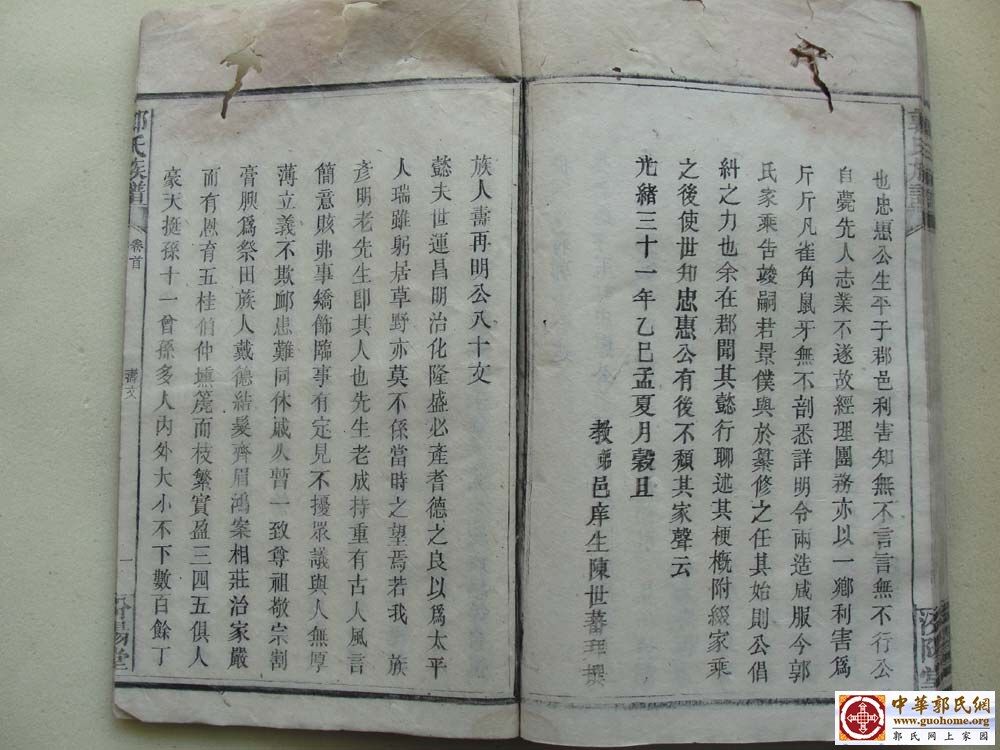 也忠惠公生平于郡邑利害知無不言言無不行公
自甍先人志業不遂故經理團務亦以一鄉利害爲
斤斤凡雀角鼠牙無不剖悉詳明令兩造咸服今郭
氏家乘告竣嗣君景僕與於纂修之任其始則公倡
糾之力也余在郡聞其懿行聊述其梗概附綴家乘
之後使世知忠惠公有後不頹其家聲云
光緒三十一年乙巳孟夏月穀旦
教弟邑庠生陳世蕃拜撰
族人壽再明公八十文
懿夫世運昌明治化隆盛必產耆德之良以爲太平
人瑞雖躬居草野亦莫不係當時之望焉若我 族
彥明老先生即其人也先生老成持重有古人風言
簡意賅弗事矯飾臨事有定見不擾眾議與人無厚
薄立義不欺卹患難同休戚久暫一致尊祖敬宗割
膏腴爲祭田族人戴德結髮齊眉鴻案相莊治家嚴
而有恩育五桂伯仲壎篪而枝繁實盈三四五俱人
豪天挺孫十一曾孫多人內外大小不下數百餘丁
郭氏族譜
卷首
壽文
一
汾陽堂
郭氏族譜
汾陽堂
中華郭氏網
www.guohome.org
郭氏網上家園